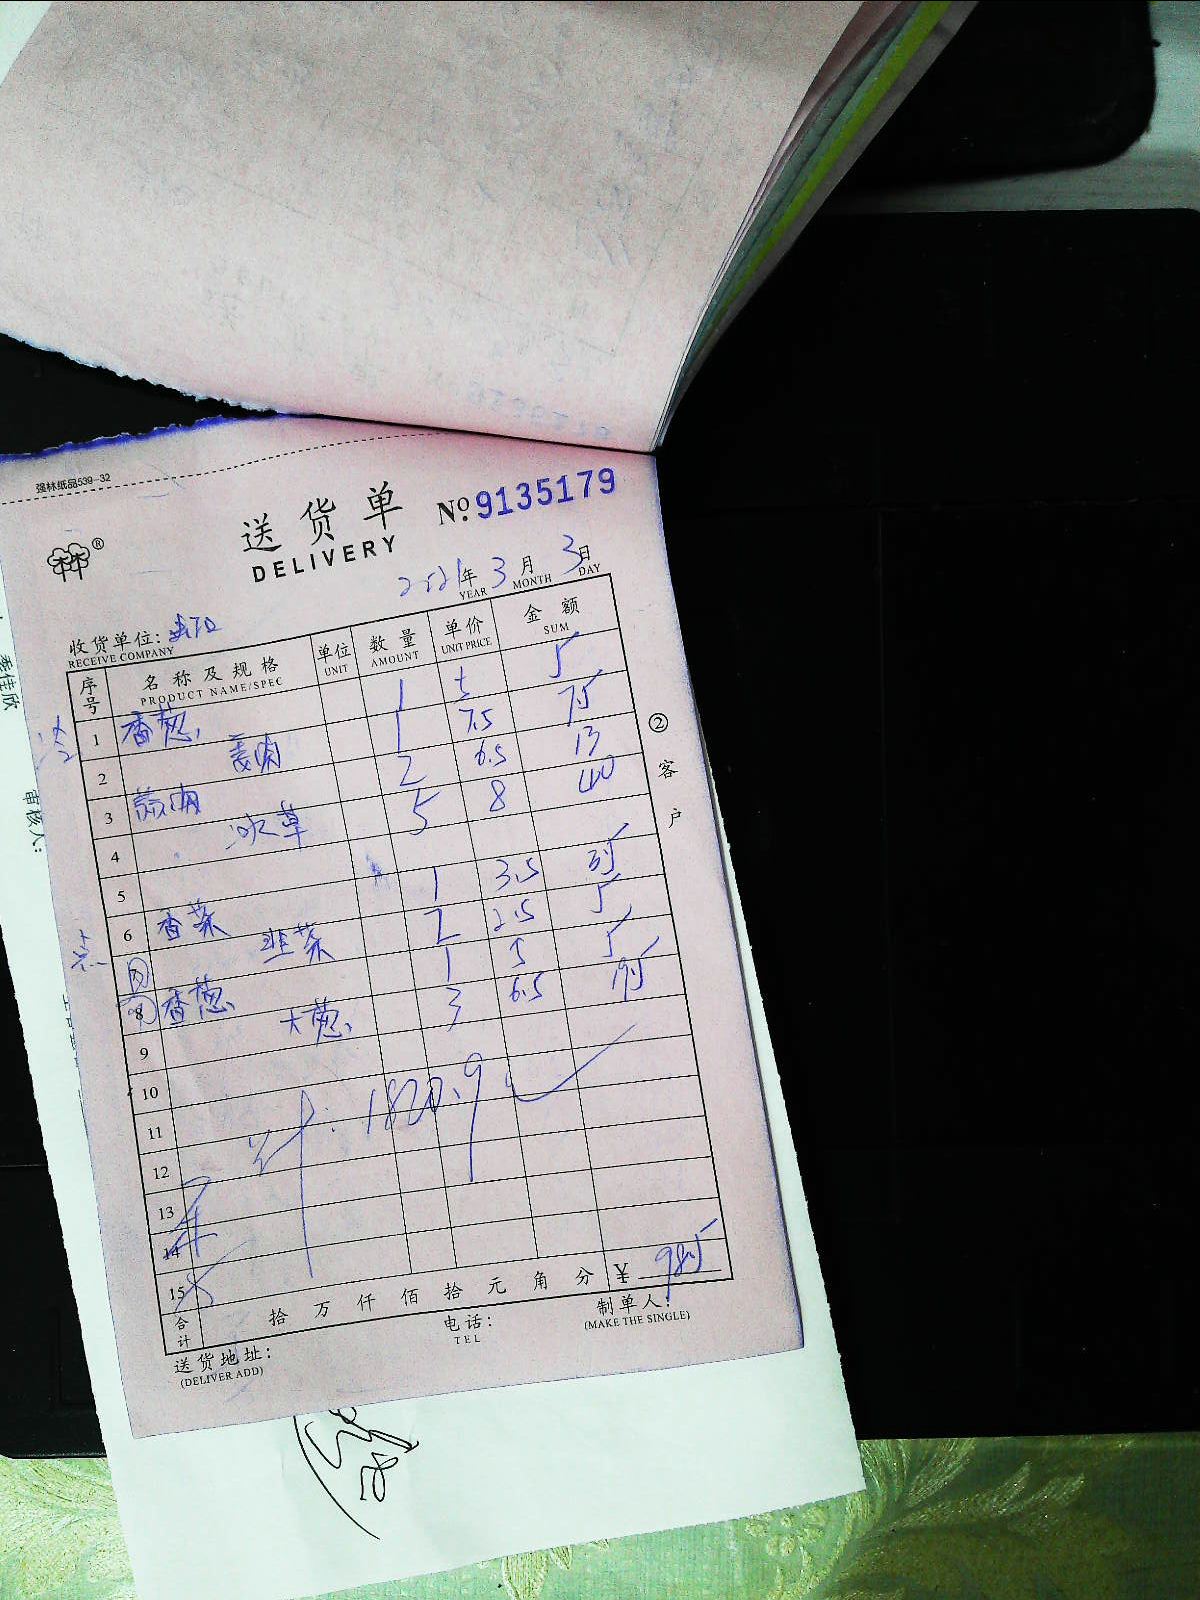 强林纸品539-32
送货单
DELIVERY
No. 9135179
2021年 3月 3日
YEAR MONTH DAY
收货单位:
RECEIVE COMPANY
序号 名称及规格 单位 数量 单价 金额
PRODUCT NAME/SPEC UNIT AMOUNT UNIT PRICE SUM
1 香葱 1 5 5
2 姜肉 1 7.5 7.5
3 蒜肉 2 6.5 13
4 冰草 5 8 40
5
6 香菜 1 3.5 3.5
7 韭菜 2 2.5 5
8 香葱 1 5 5
大葱 3 6.5 19.5
9
10
11 计: 1820.9
12
13
14
15
合计 拾 万 仟 佰 拾 元 角 分 ¥ 98.5
送货地址: 电话: 制单人:
(DELIVER ADD) TEL (MAKE THE SINGLE)
② 客户
李佳欣
审核人: